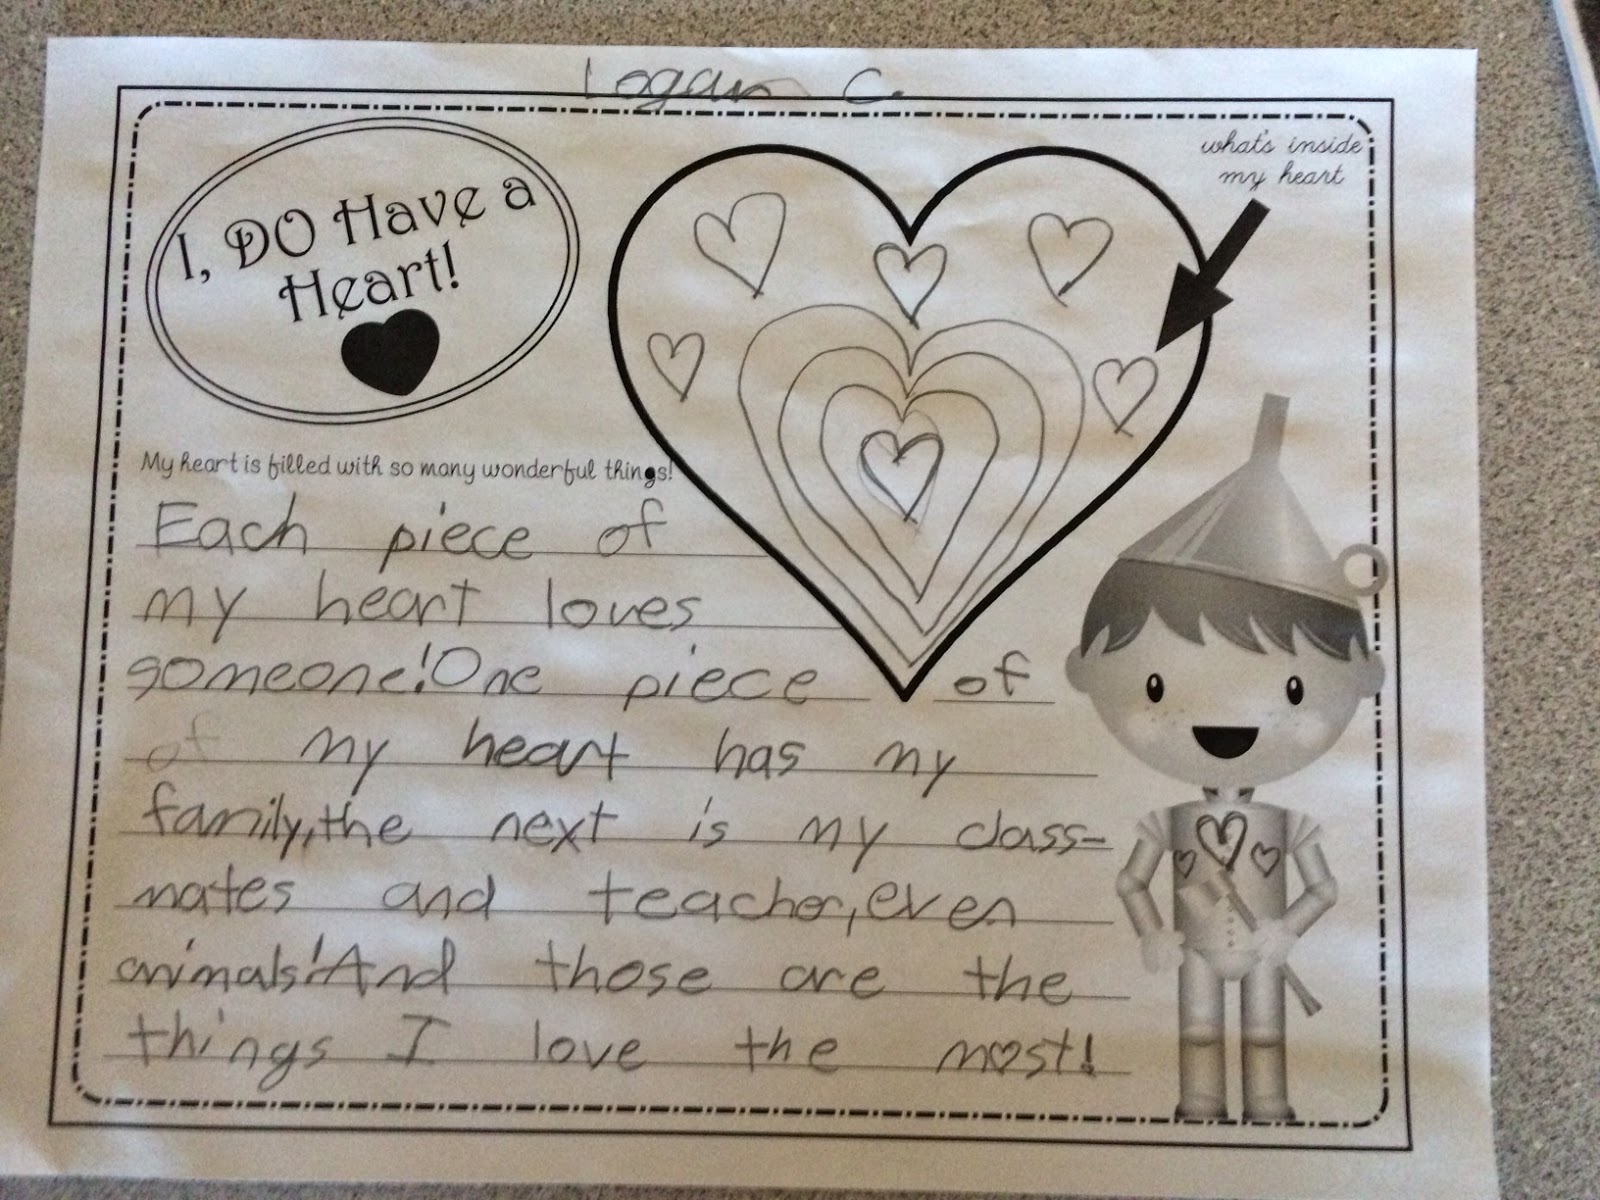 Logan C.
I, DO Have a
Heart!
what's inside
my heart
My heart is filled with so many wonderful things!
Each piece of
my heart loves
someone! One piece of
of my heart has my
family, the next is my class-
mates and teacher, even
animals! And those are the
things I love the most!